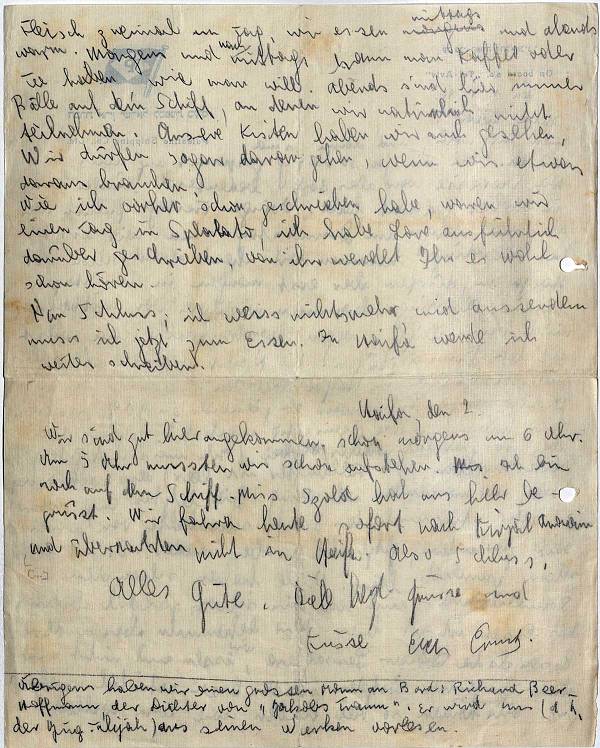 Fleisch zweimal im Tag, wir essen mittags und abends
warm. Morgens und nachmittags kann man Kaffee oder
Tee haben wie man will. Abends sind hier immer
Bälle auf dem Schiff, an denen wir natürlich nicht
teilnehmen. Unsere Kisten haben wir auch gesehen,
Wir dürfen sogar daran gehen, wenn wir etwas
daraus brauchen.
Wie ich vorher schon geschrieben habe, waren wir
einen Tag in Spalato, ich habe Lore ausführlich
darüber geschrieben, von ihr werdet Ihr es wohl
schon hören.
Nun Schluss, ich weiss nichts mehr und ausserdem
muss ich jetzt zum Essen. In Haifa werde ich
weiter schreiben.
Haifa, den 2.
Wir sind gut hier angekommen, schon morgens um 6 Uhr.
Um 5 Uhr mussten wir schon aufstehen. Ich bin
noch auf dem Schiff. Miss Szold hat uns hier be-
grüsst. Wir fahren heute sofort nach Kirjat
und übernachten nicht in Haifa. Also Schluss,
Alles Gute, viele hzgl. Grüsse und
Küsse Euer Ernst.
Übrigens haben wir einen grossen Mann an Bord: Richard Beer-
Hoffmann der Dichter von "Jaakobs Traum". Er wird uns (d.h.
der Jug.-Alijah) aus seinen Werken vorlesen.